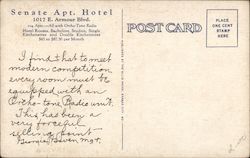 Senate Apt. Hotel
1017 E. Armour Blvd.
104 Apts.—All with Ortho-Tone Radio
Hotel Rooms, Bachelors, Studios, Single
Kitchenettes and Double Kitchenettes
$45 to $87.50 per Month
POST CARD
PLACE
ONE CENT
STAMP
HERE
I find that to meet
modern competition
every room must be
equipped with an
Ortho-tone Radio unit.
This has been a
very forceful
selling point
Mgr.